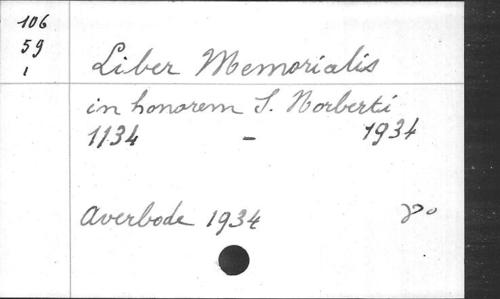 106
59
1
Liber Memorialis
in honorem S. Norberti
1134 - 1934
Averbode 1934 8°